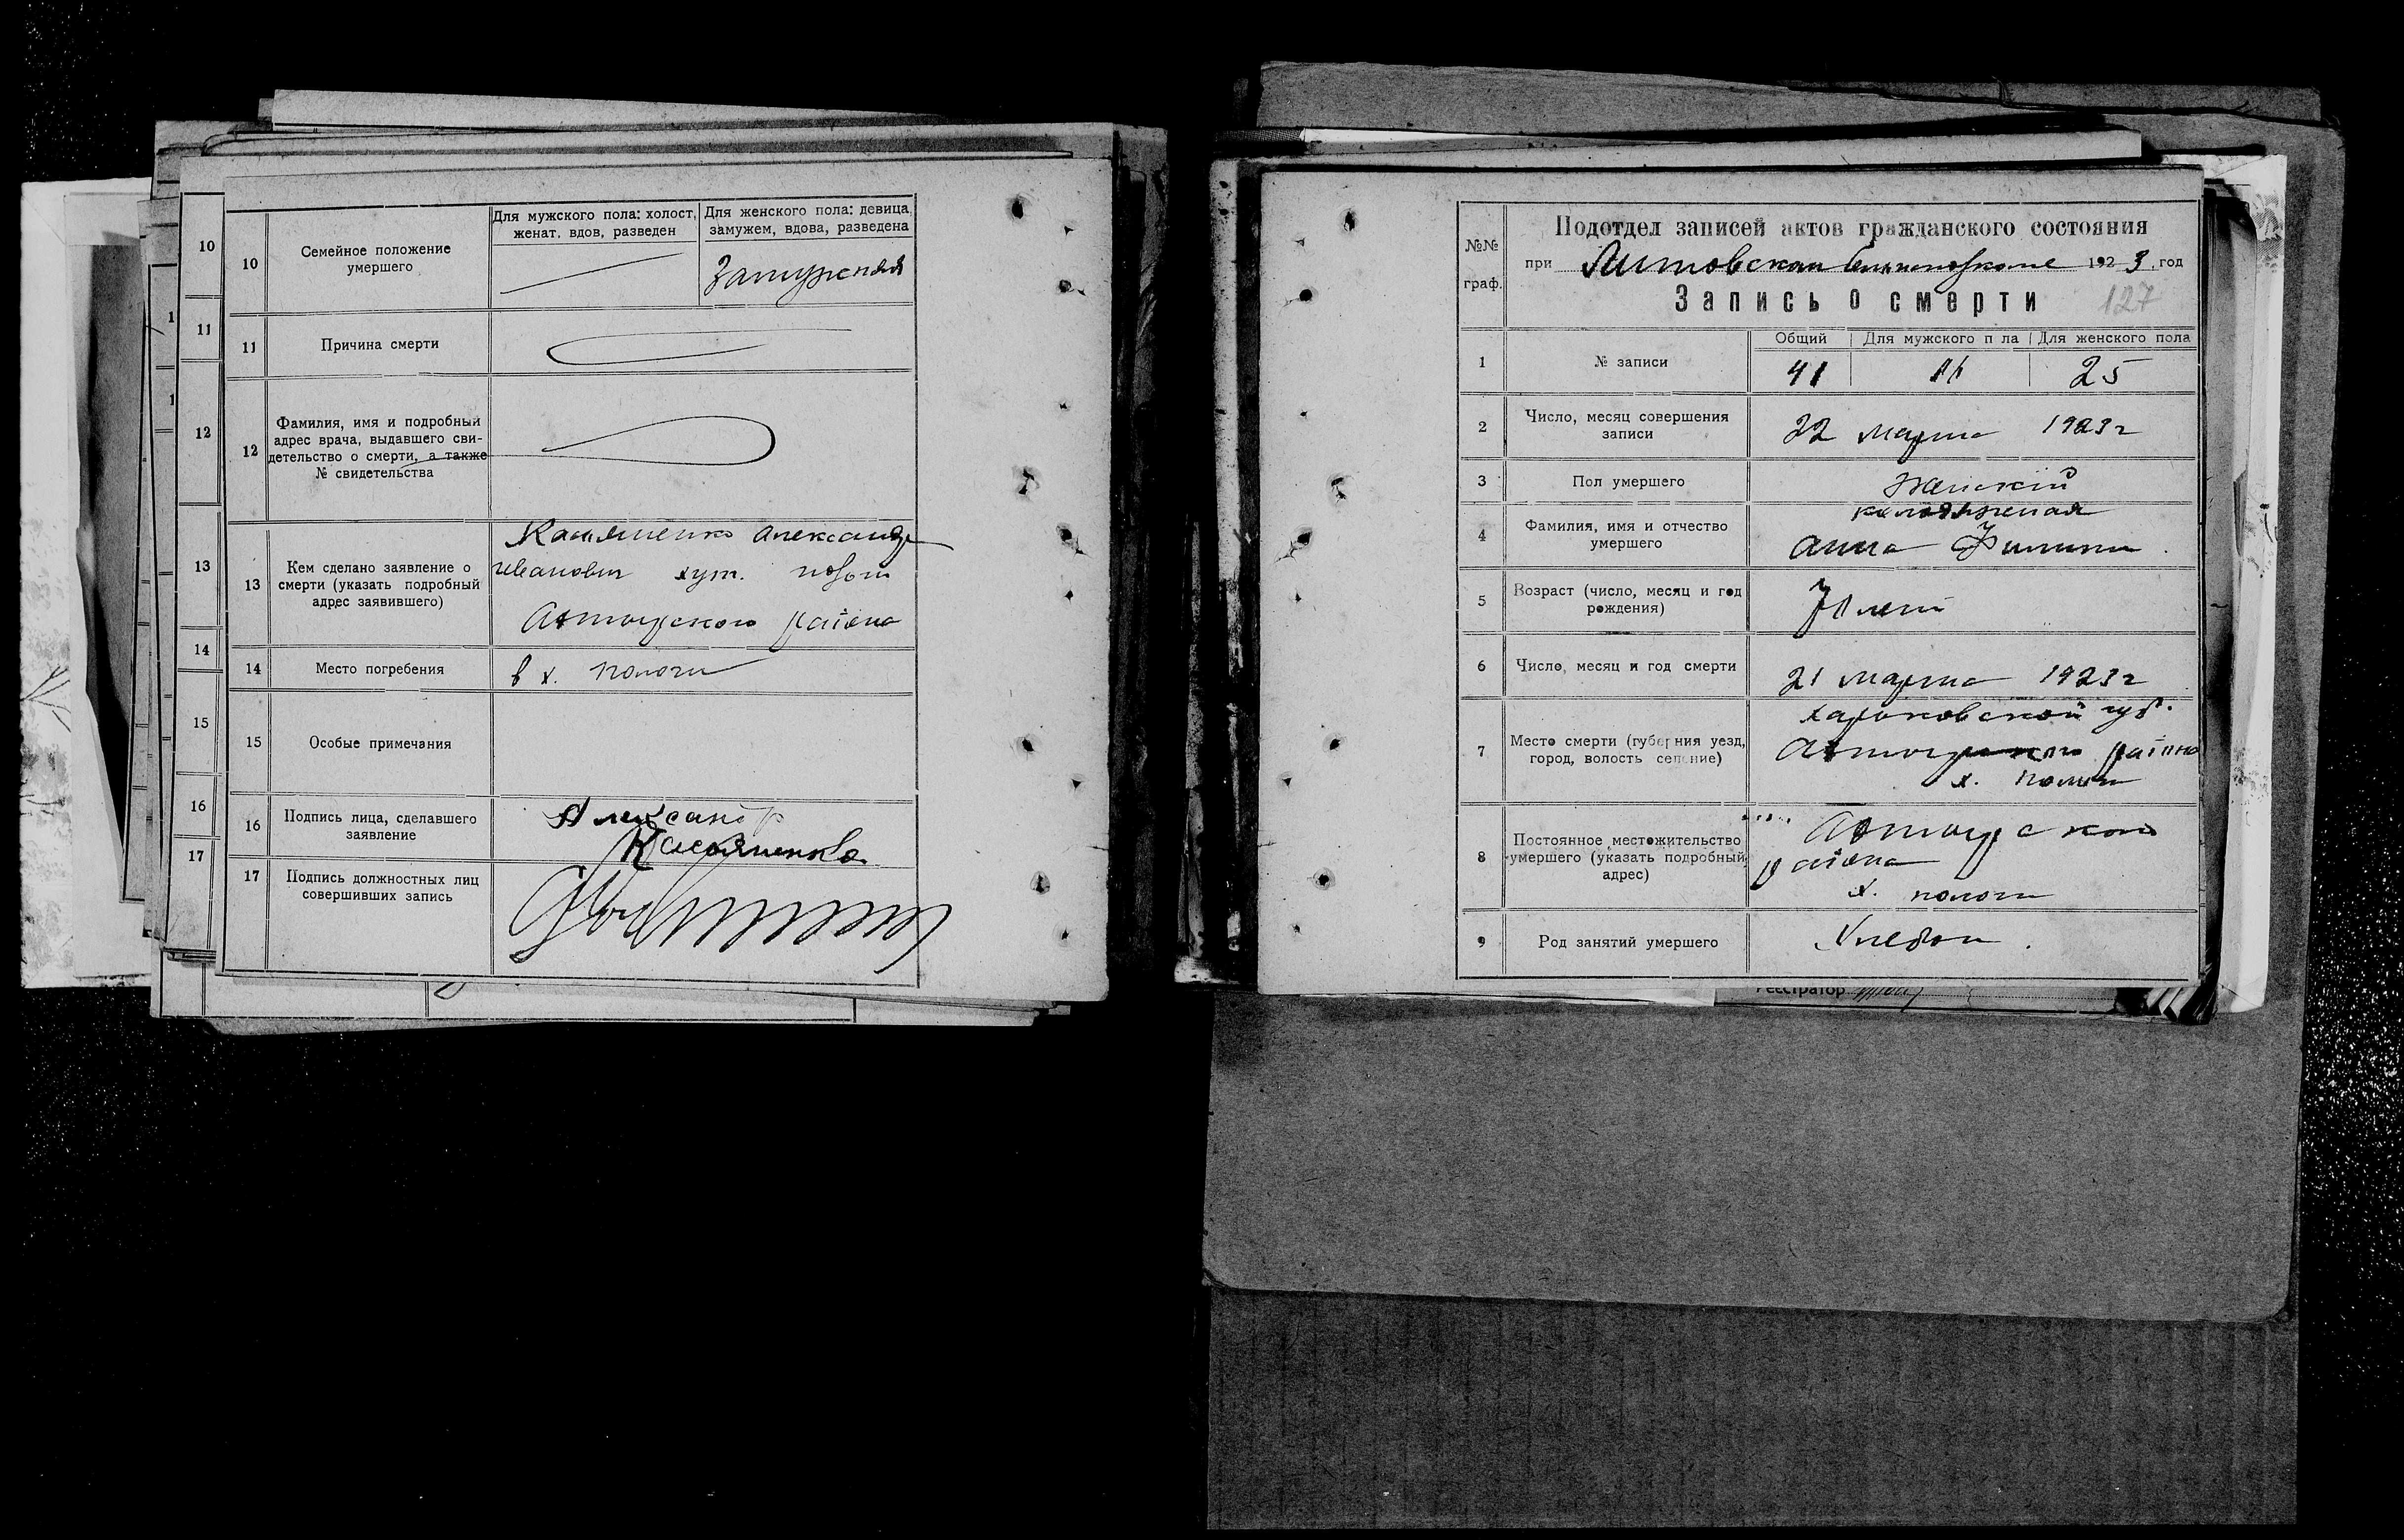 10
11
12
13
14
15
16
17
10
Семейное положение
умершего
Для мужского пола: холост,
женат, вдов, разведен
Для женского пола: девица,
замужем, вдова, разведена
Замужняя
11
Причина смерти
12
Фамилия, имя и подробный
адрес врача, выдавшего сви-
детельство о смерти, а также
№ свидетельства
13
Кем сделано заявление о
смерти (указать подробный
адрес заявившего)
Александр
Иванович хут.
района
14
Место погребения
в х. Пологи
15
Особые примечания
16
Подпись лица, сделавшего
заявление
Александр
17
Подпись должностных лиц
совершивших запись
№№
граф.
Подотдел записей актов гражданского состояния
при 1923 год
Запись о смерти
127
1
№ записи
Общий
Для мужского п ла
Для женского пола
41
16
25
2
Число, месяц совершения
записи
22 марта 1923 г
3
Пол умершего
Женский
4
Фамилия, имя и отчество
умершего
Анна
5
Возраст (число, месяц и год
рождения)
лет
6
Число, месяц и год смерти
21 марта 1923 г
7
Место смерти (губерния уезд,
город, волость селение)
Харьковской губ.
района
х. Пологи
8
Постоянное местожительство
умершего (указать подробный
адрес)
района
х. Пологи
9
Род занятий умершего
Хлебоп
Регстратор